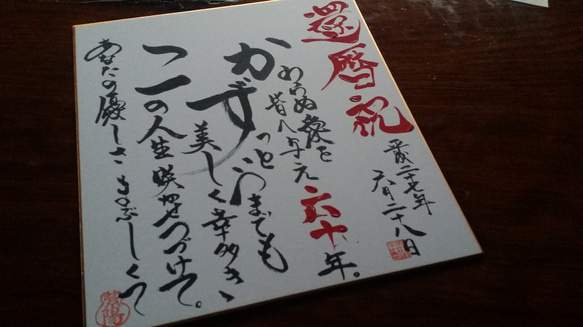 還暦祝
平成二十七年
六月二十八日
かわらぬ愛を
皆へ与え六十年。
ずっといつまでも
美しく幸多き、
の人生咲かせつづけて。
あなたの優しさまぶしくって